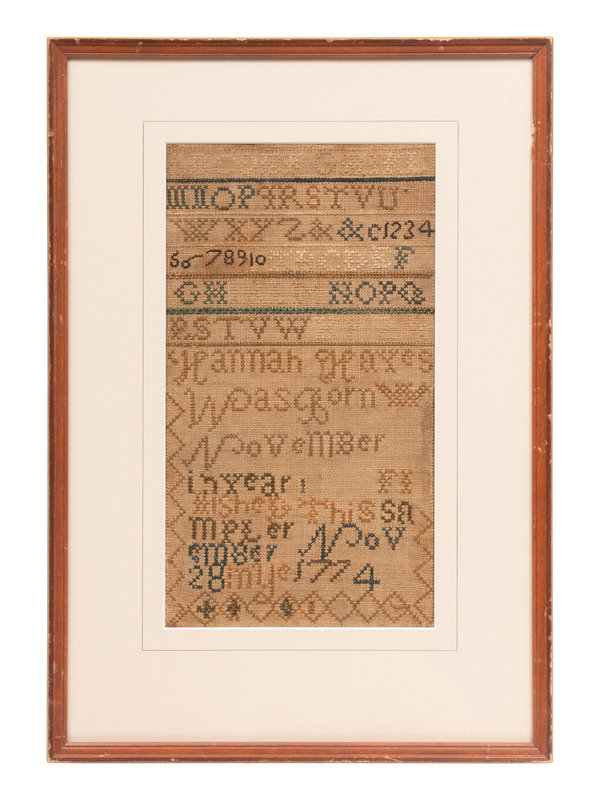 MNOPQRSTVU
WXYZ& &c1234
78910 F
GH NOPQ
RSTVW
Hannah Hayes
Was Born
November
in year 1 FI
NisheD This sa
mpler Nov
ember
28 in ye 1774